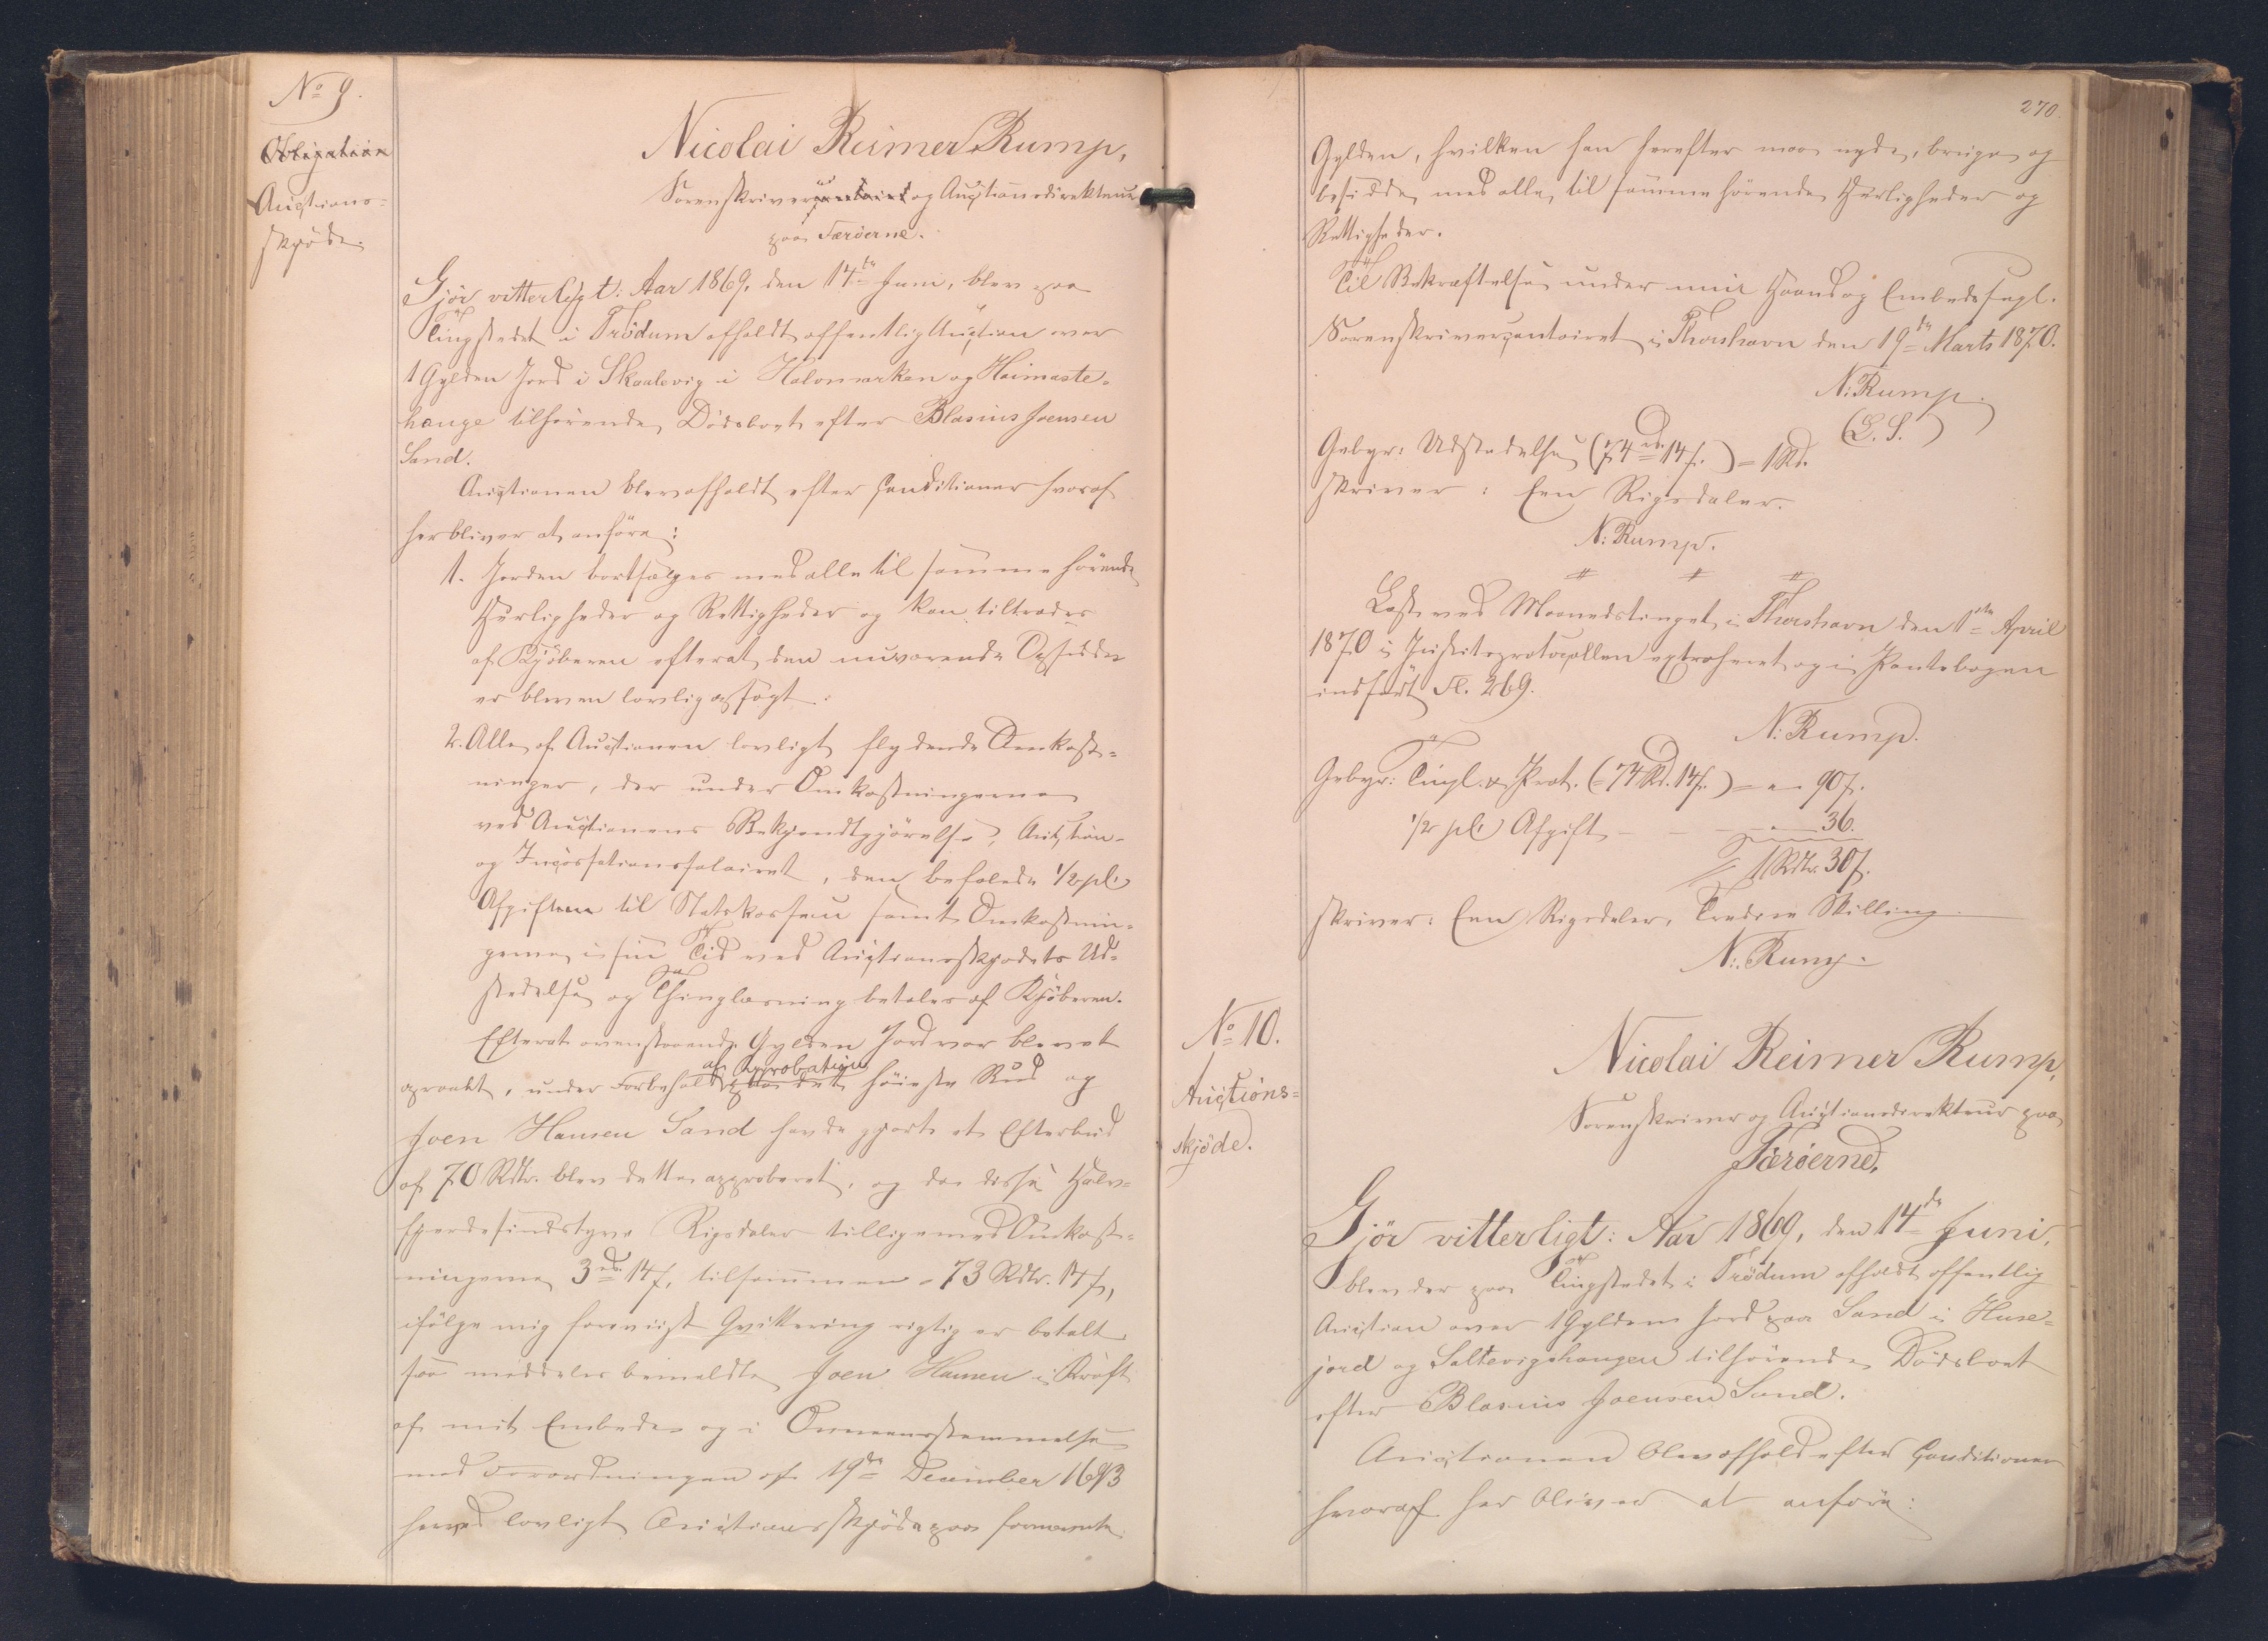 No 9.
Obligation
Auctions=
skjöde.
Nicolai Reimer Rump,
Sorenskriver og Auctionsdirekteur
paa Færöerne.
Gjör vitterligt: Aar 1869, den 14de Juni, blev paa
Tingstedet i Trödum afholdt offentlig Auction over
1 Gylden Jord i Skaalevig i Halvmarken og Heimaste=
hauge tilhörende Dödsboet efter Blasius Joensen
Sand.
Auctionen blev afholdt efter Conditioner hvoraf
her bliver at anföre:
1. Jorden bortsælges med alle til samme hörende
Herligheder og Rettigheder og kan tiltrædes
af Kjöberen efterat den nuværende Opsidder
er bleven lovlig opsagt.
2. Alle af Auctionen lovligt flydende Omkost=
ninger, der under Omkostningerne
ved Auctionens Bekjendtgjörelse, Auction-
og Incassationssalairet, den befalede 1/2 pCt
Afgiften til Statskassen samt Omkostnin=
gerne i sin Tid ved Auctionsskjödets Ud=
stedelse og Thinglæsning betales af Kjöberen.
Efterat ovenstaaende Gylden Jord var blevet
opraabt, under Forbehold af Approbation paa det höieste Bud og
Joen Hansen Sand havde gjort et Efterbud
af 70 Rdlr. blev dette approberet, og da disse Halv=
fjerdesindstyve Rigsdaler tilligemed Omkost=
ningerne 3 Rd. 14 s, tilsammen 73 Rdlr. 14 s,
ifölge mig foreviist Qvittering rigtig er betalt
saa meddeles bemeldte Joen Hansen i Kraft
af mit Embede og i Overeensstemmelse
med Forordningen af 19de December 1693
herved lovligt Auctionsskjöde paa fornævnte
270
Gylden, hvilken han herefter maa nyde, bruge og
besidde med alle til samme hörende Herligheder og
Rettigheder.
Til Bekræftelse under min Haand og Embedssegl.
Sorenskrivercontoiret i Thorshavn den 19de Marts 1870.
N. Rump.
(L. S.)
Gebyr: Udstedelse (74 Rd. 14 s.) = 1 Rd.
skriver: Een Rigsdaler.
N. Rump.
Læst ved Maanedstinget i Thorshavn den 1ste April
1870 i Justitsprotocollen extraheret og i Pantebogen
indfört Fl. 269.
N. Rump.
Gebyr: Tingl. & Prot. (= 74 Rd. 14 s.) = 90 s.
1/2 pCt Afgift - - - 36.
1 Rdlr. 30 s.
skriver: Een Rigsdaler, Tredive Skilling.
N. Rump.
No 10.
Auctions=
skjöde.
Nicolai Reimer Rump,
Sorenskriver og Auctionsdirekteur paa
Færöerne,
Gjör vitterligt: Aar 1869, den 14de Juni,
blev der paa Tingstedet i Trödum afholdt offentlig
Auction over 1 Gylden Jord paa Sand i Huse=
jord og Saltevigshaugen tilhörende Dödsboet
efter Blasius Joensen Sand.
Auctionen blev afholdt efter Conditioner
hvoraf her bliver at anföre: